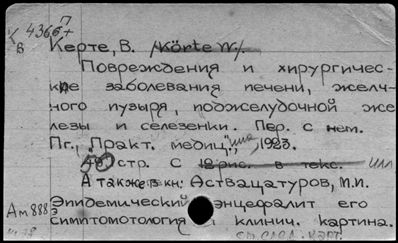 4366 П+
К
В
Керте, В. /Körte W/.
Повреждения и хирургичес-
кие заболевания печени, желч-
ного пузыря, поджелудочной же
лезы и селезенки. Пер. с нем.
Пг., "Практ. медиц.", 1923.
стр. с 12 рис. в текс. илл
А также в кн: Аствацатуров, М.И.
Эпидемический энцефалит его
симптомотология и клинич. картина.
Ам 888
см. след. карт.